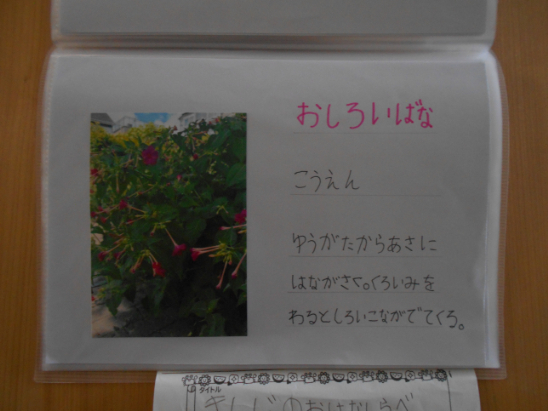 おしろいばな
こうえん
ゆうがたからあさに
はながさく。くろいみを
わるとしろいこながでてくる。
タイトル